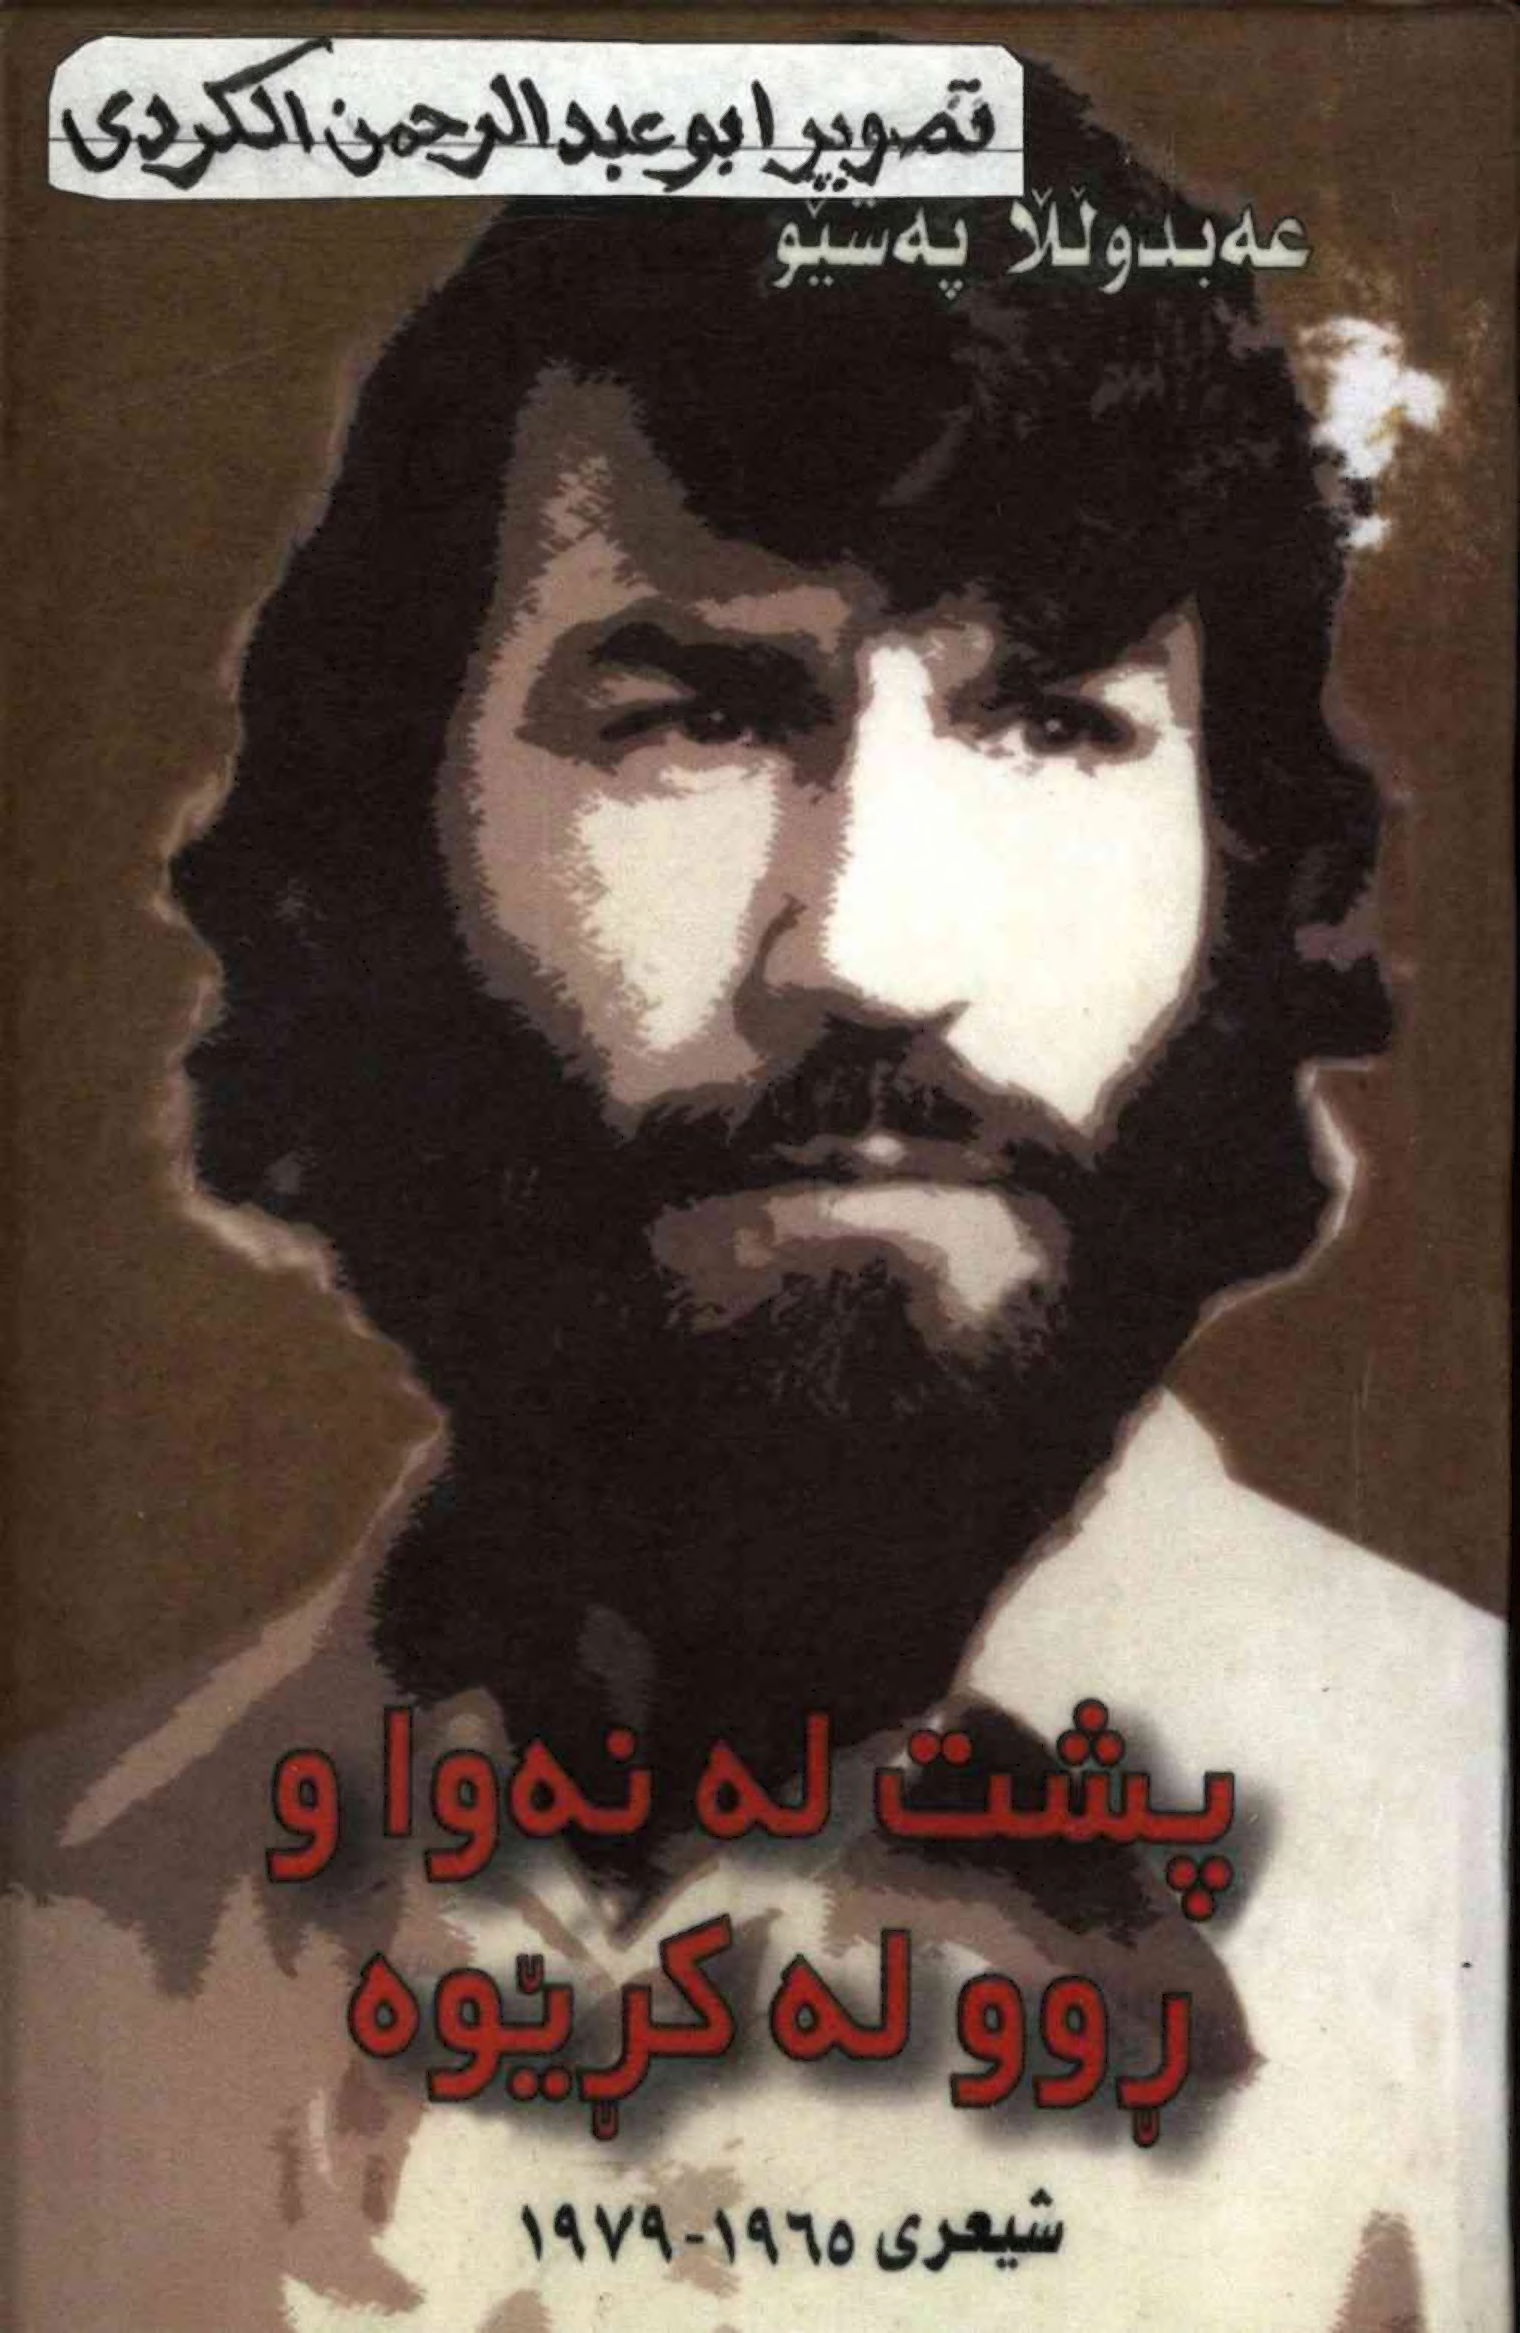 تصوير ابو عبد الرحمن الكردي
عەبدوڵڵا پەشێو
پشت لە نەوا و
ڕوو لە کڕێوە
شیعری ١٩٦٥-١٩٧٩